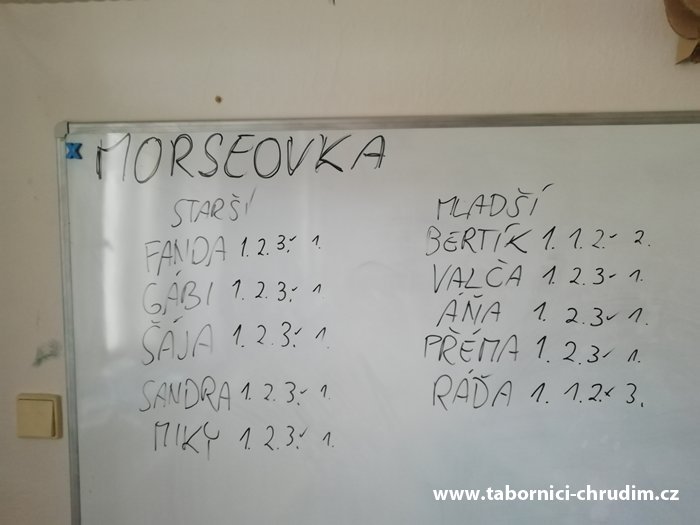 MORSEOVKA
STARŠÍ
FANDA 1. 2. 3.✓ 1.
GÁBI 1. 2. 3.✓ 1.
ŠÁJA 1. 2. 3.✓ 1.
SANDRA 1. 2. 3.✓ 1.
MIKY 1. 2. 3.✓ 1.
MLADŠÍ
BERTÍK 1. 1. 2.✓ 2.
VALČA 1. 2. 3✓ 1.
ÁŇA 1. 2. 3✓ 1.
PŘÉMA 1. 2. 3✓ 1.
RÁĎA 1. 1. 2.✓ 3.
www.tabornici-chrudim.cz